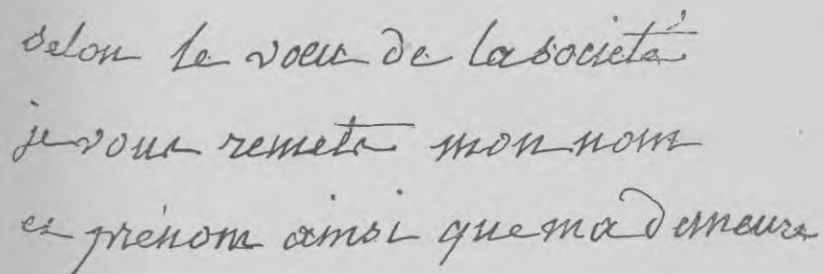 selon le voeu de la société
je vous remets mon nom
et prénom ainsi que ma demeure